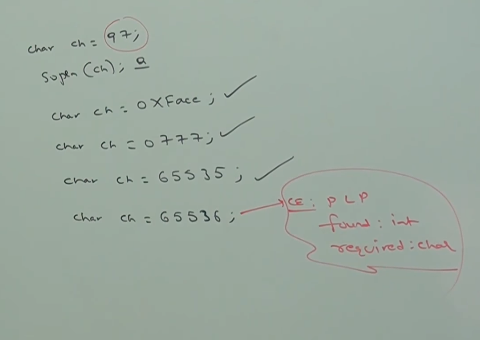 char ch = 97;
Sopln (ch); a
char ch = 0XFace;
char ch = 0777;
char ch = 65535;
char ch = 65536;
CE: PLP
found: int
required: char